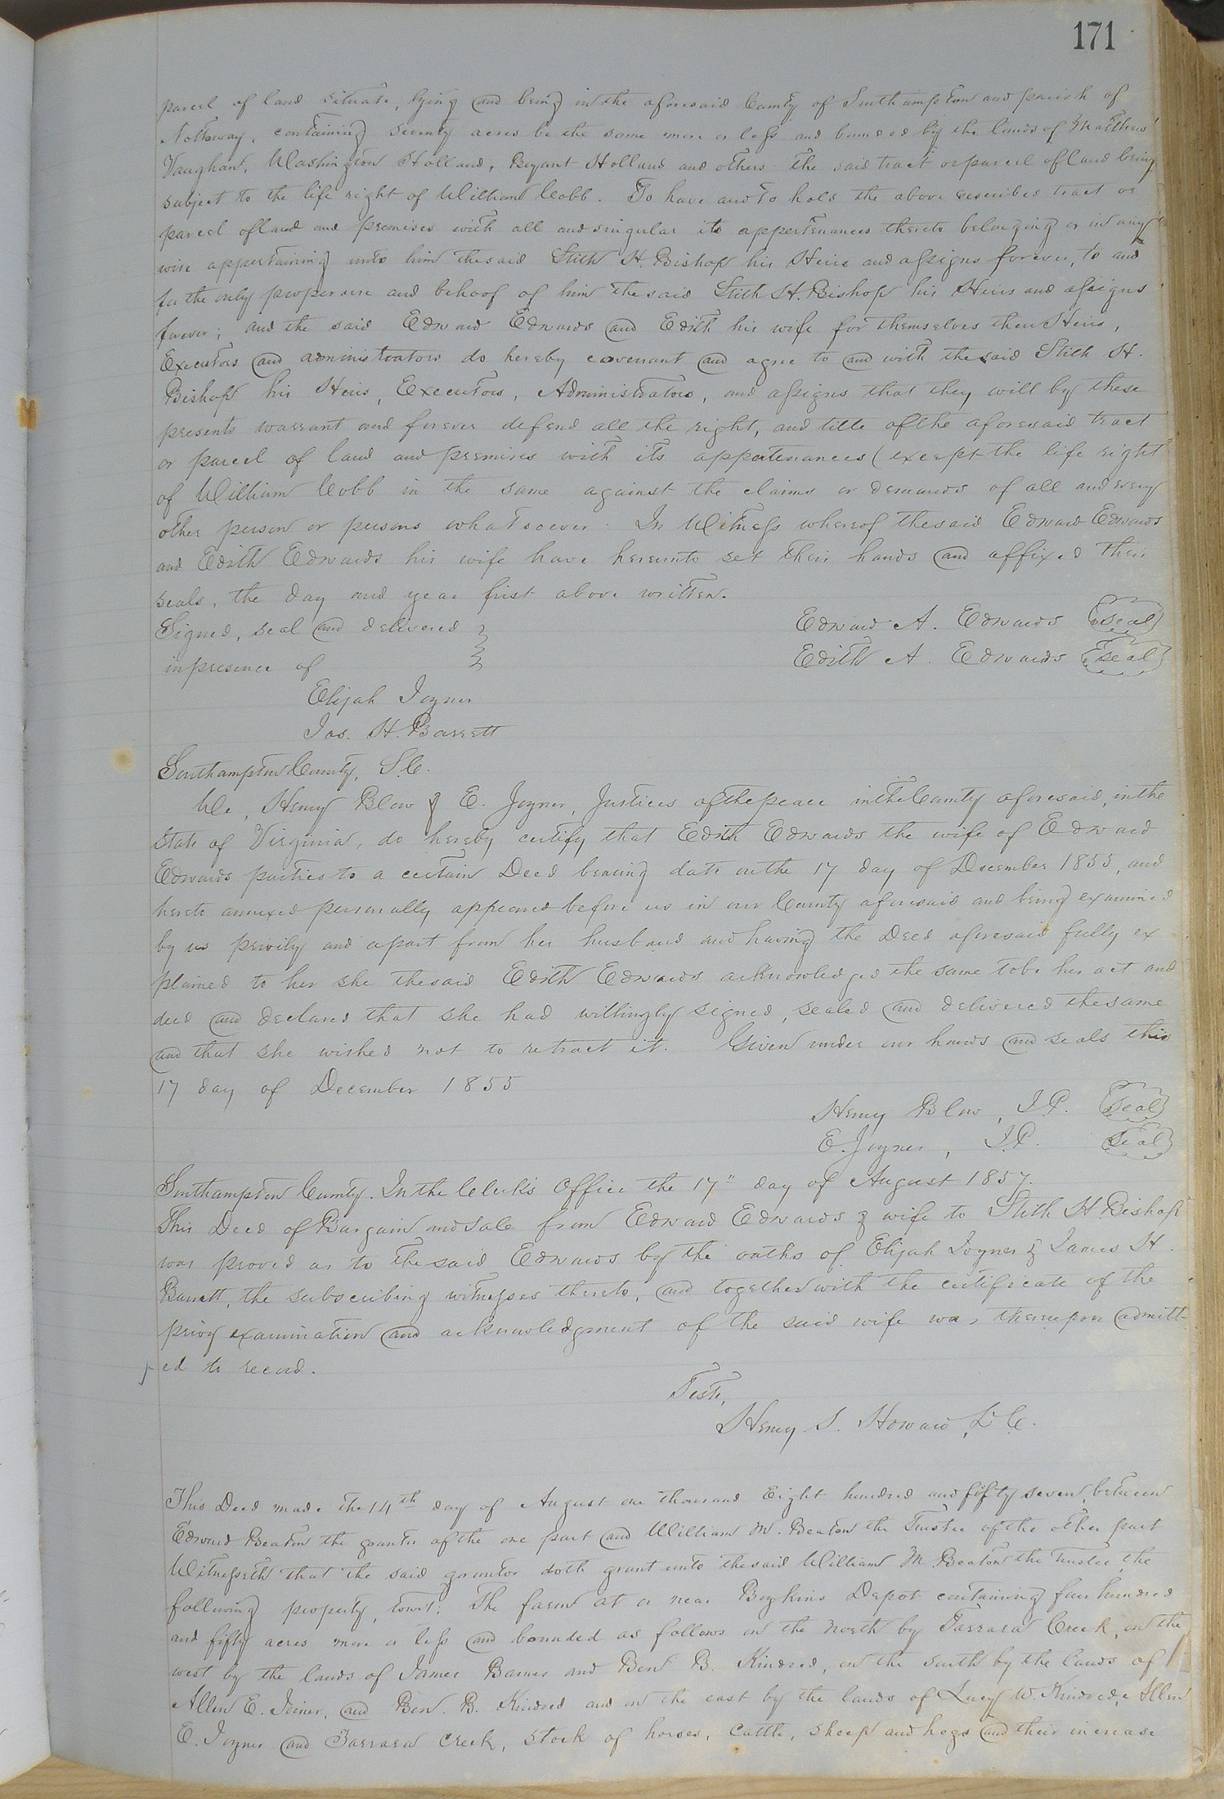 171
parcel of land situate, lying and being in the aforesaid County of Southampton and parish of
Nottoway, containing seventy acres be the same more or less and bounded by the lands of Matthew
Vaughan, Washington Holland, Bryant Holland and others the said tract or parcel of land being
subject to the life right of William Cobb. To have and to hold the above described tract or
parcel of land and premises with all and singular its appertenances thereto belonging or in any
wise appertaining unto him the said Stith H. Bishop his Heirs and assigns forever, to and
for the only proper use and behoof of him the said Stith H. Bishop his Heirs and assigns
forever; and the said Edward Edwards and Edith his wife for themselves their Heirs,
Executors and administrators do hereby covenant and agree to and with the said Stith H.
Bishop his Heirs, Executors, Administrators, and assigns that they will by these
presents warrant and forever defend all the right, and title of the aforesaid tract
or parcel of land and premises with its appertenances (except the life right
of William Cobb in the same against the claims or demands of all and every
other person or persons whatsoever. In Witness whereof the said Edward Edwards
and Edith Edwards his wife have hereunto set their hands and affixed their
seals, the day and year first above written.
Signed, seal and delivered
in presence of
Edward A. Edwards (seal)
Edith A. Edwards (seal)
Elijah Joyner
Jas. H. Barrett
Southampton County, S.C.
We, Henry Blow & E. Joyner, Justices of the peace in the County aforesaid, in the
State of Virginia, do hereby certify that Edith Edwards the wife of Edward
Edwards parties to a certain Deed bearing date on the 17 day of December 1855, and
hereto annexed personally appeared before us in our County aforesaid and being examined
by us privily and apart from her husband and having the Deed aforesaid fully ex
plained to her she the said Edith Edwards acknowledged the same to be her act and
deed and declared that she had willingly signed, sealed and delivered the same
and that she wished not to retract it. Given under our hands and seals this
17 day of December 1855
Henry Blow, J.P. (seal)
E. Joyner, J.P. (seal)
Southampton County. In the Clerk's Office the 17" day of August 1857.
This Deed of Bargain and Sale from Edward Edwards & wife to Stith H. Bishop
was proved as to the said Edwards by the oaths of Elijah Joyner & James H.
Barrett, the subscribing witnesses thereto, and together with the certificate of the
privy examination and acknowledgment of the said wife was thereupon admitt-
ed to record.
Teste,
Henry S. Howard, D.C.
This Deed made the 14th day of August one thousand Eight hundred and fifty seven, between
Edward Beaton the grantor of the one part and William M. Beaton the Trustee of the other part
Witnesseth that the said grantor doth grant unto the said William M Beaton the Trustee, the
following property, towit: The farm at or near Boykins Depot containing four hundred
and fifty acres more or less and bounded as follows on the north by Tarrara Creek, on the
west by the lands of James Barnes and Ben B. Kindred, on the south by the lands of
Allen E. Joiner, and Ben. B. Kindred and on the east by the lands of Lucy W. Kindred, Allen
E. Joyner and Tarrara Creek, stock of horses, cattle, sheep and hogs and their increase